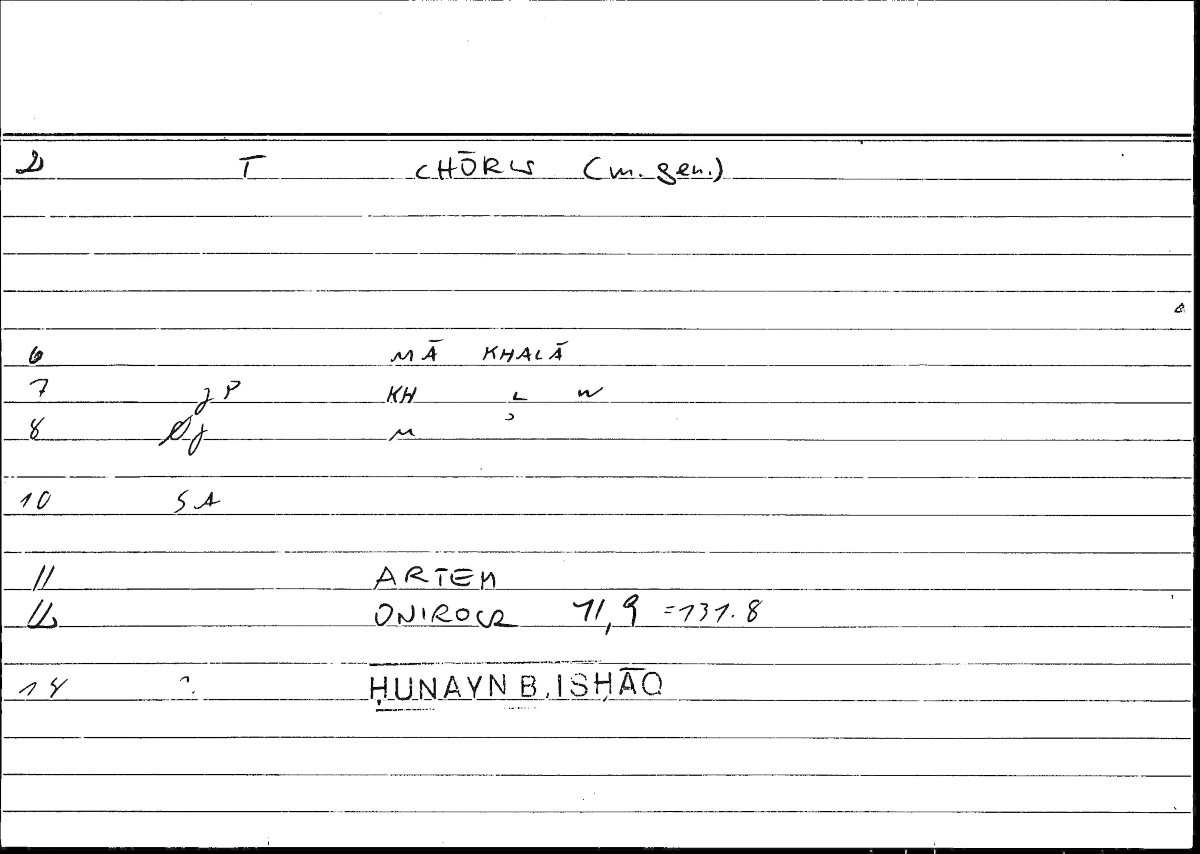 2 T CHŌRIS (m. gen.)
6 MĀ KHALĀ
7 jP KH L W
8 j M
10 SA
11 ARTEM
12 ONIROCR 71,9 =131.8
14 ?. ḤUNAYN B. ISḤĀQ